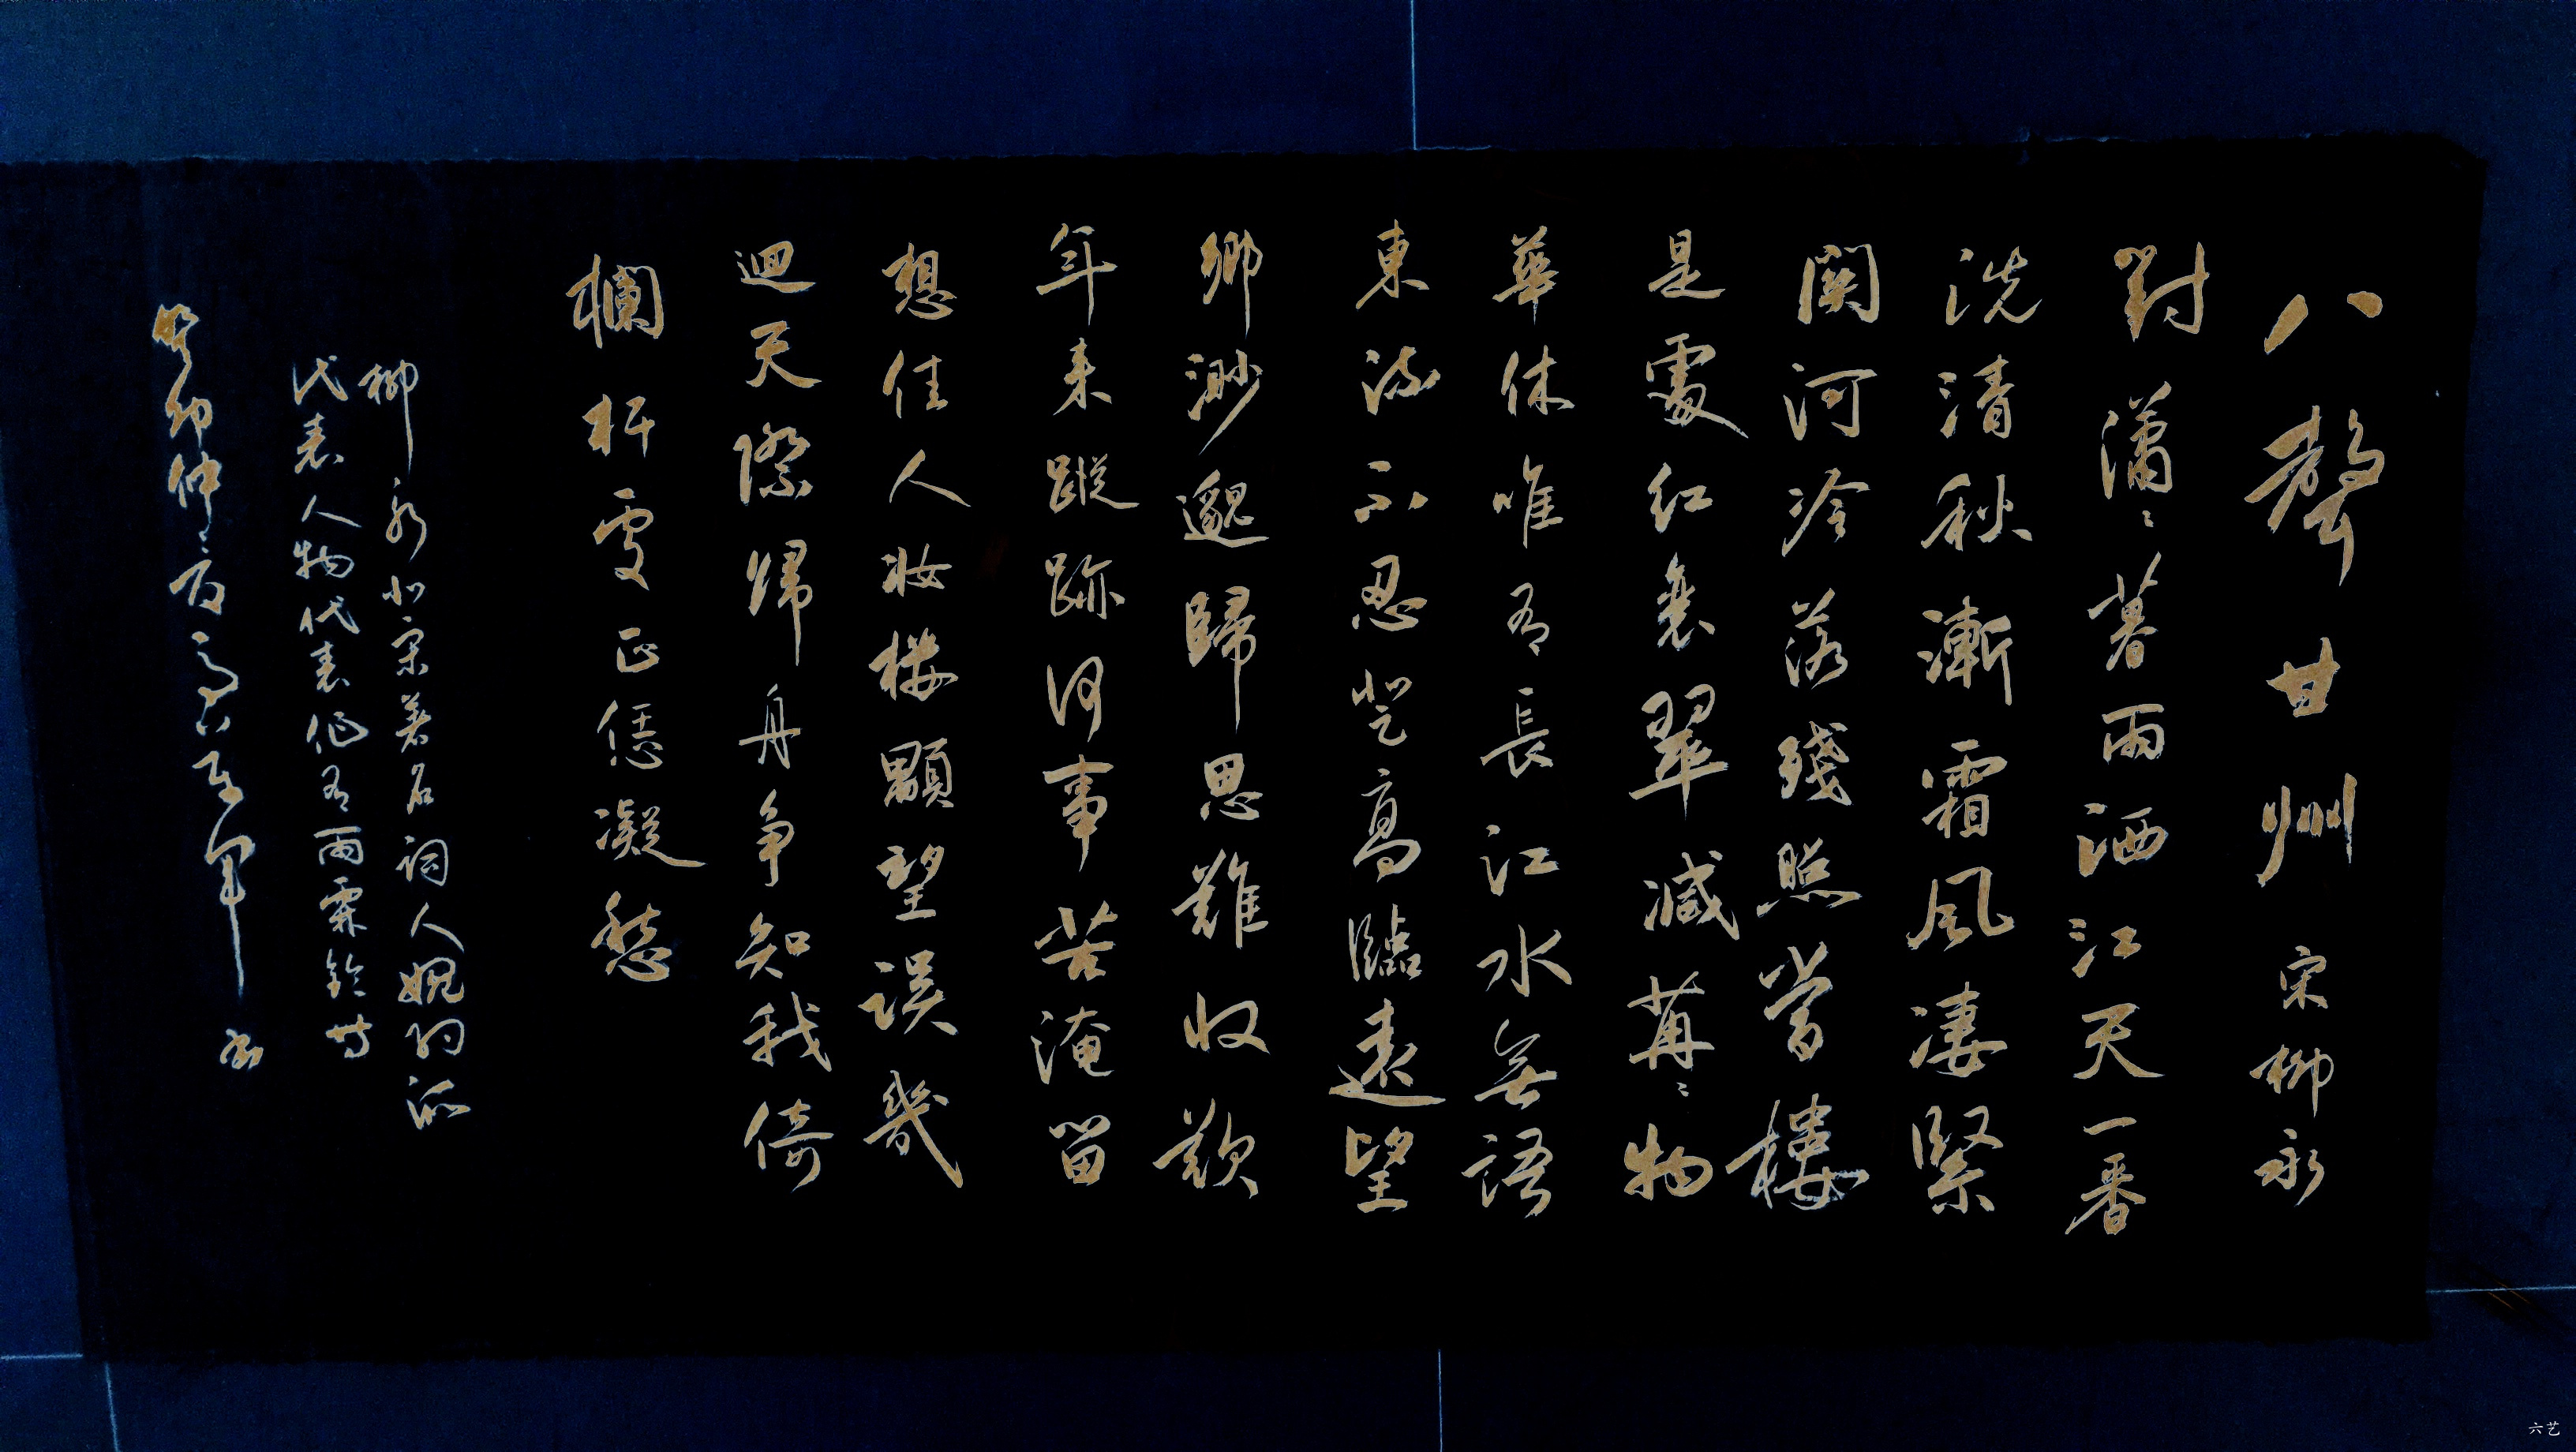 八聲甘州 宋 柳永
對瀟〻暮雨洒江天一番
洗清秋漸霜風凄緊
関河冷落殘照當樓
是處紅衰翠減苒〻物
華休唯有長江水無語
東流不忍登高臨遠望
鄉渺邈歸思難收歎
年来蹤跡何事苦淹留
想佳人妝樓顒望误幾
迴天際归舟争知我倚
欄杆處正恁凝愁
柳永北宋著名词人婉约派
代表人物代表作有雨霖鈴等
癸卯仲
六艺